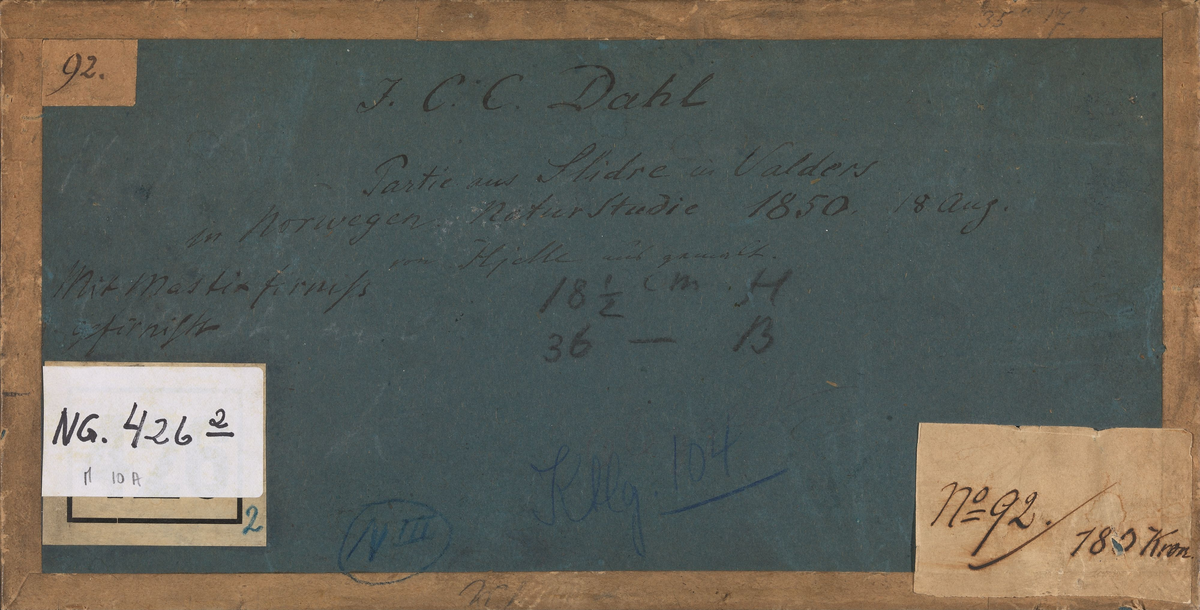 "35" "17"
92.
J. C. C. Dahl
Partie aus Slidre in Valders
in Norwegen. Naturstudie 1850. 18 Aug.
von Hjelle aus gemalt.
Mit Mastix firniss
gefirnisst
18 1/2 cm. H
36 — B
NG. 426 2
M 10A
2
Kllg. 104
N III
No 92.
180 Kron